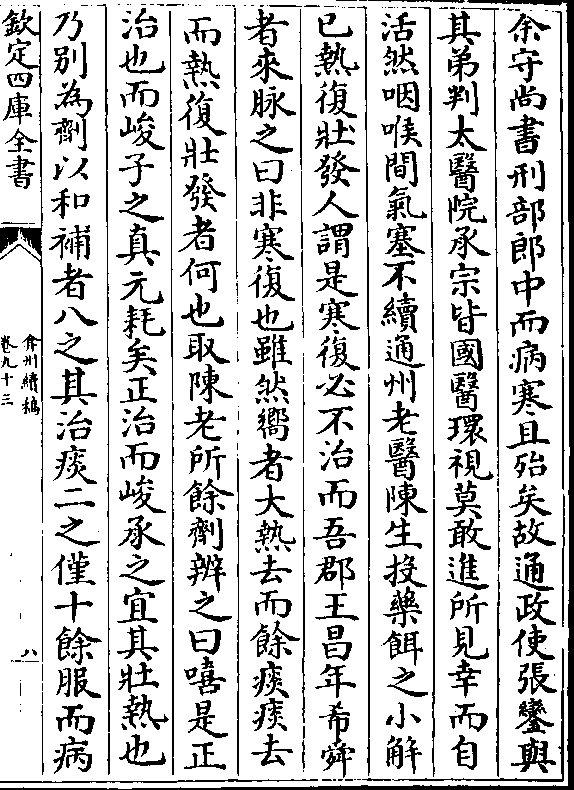 余守尚書刑部郎中而病寒且殆矣故通政使張鑾與
其弟判太醫院承宗皆國醫環視莫敢進所見幸而自
活然咽喉間氣塞不續通州老醫陳生投藥餌之小解
已熱復壯發人謂是寒復必不治而吾郡王昌年希舜
者來脉之曰非寒復也雖然嚮者大熱去而餘痰痰去
而熱復壯發者何也取陳老所餘劑辨之曰嘻是正
治也而峻子之真元耗矣正治而峻承之宜其壯熱也
乃別為劑以和補者八之其治痰二之僅十餘服而病
欽定四庫全書
弇州續稿
卷九十三
八